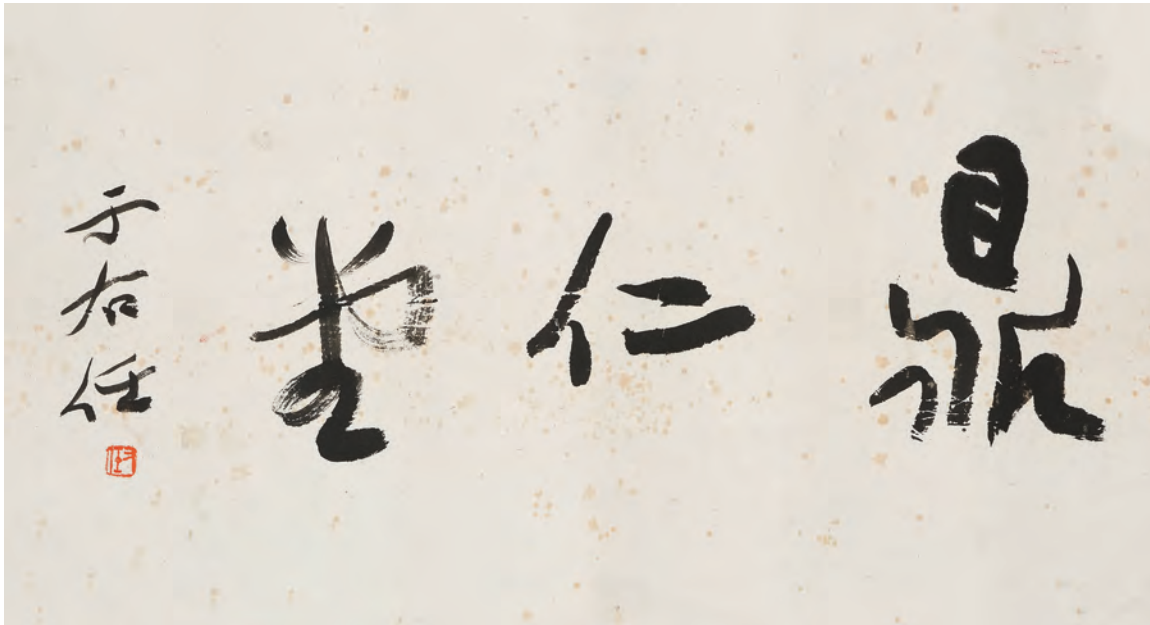 鼎仁堂
于右任
右任